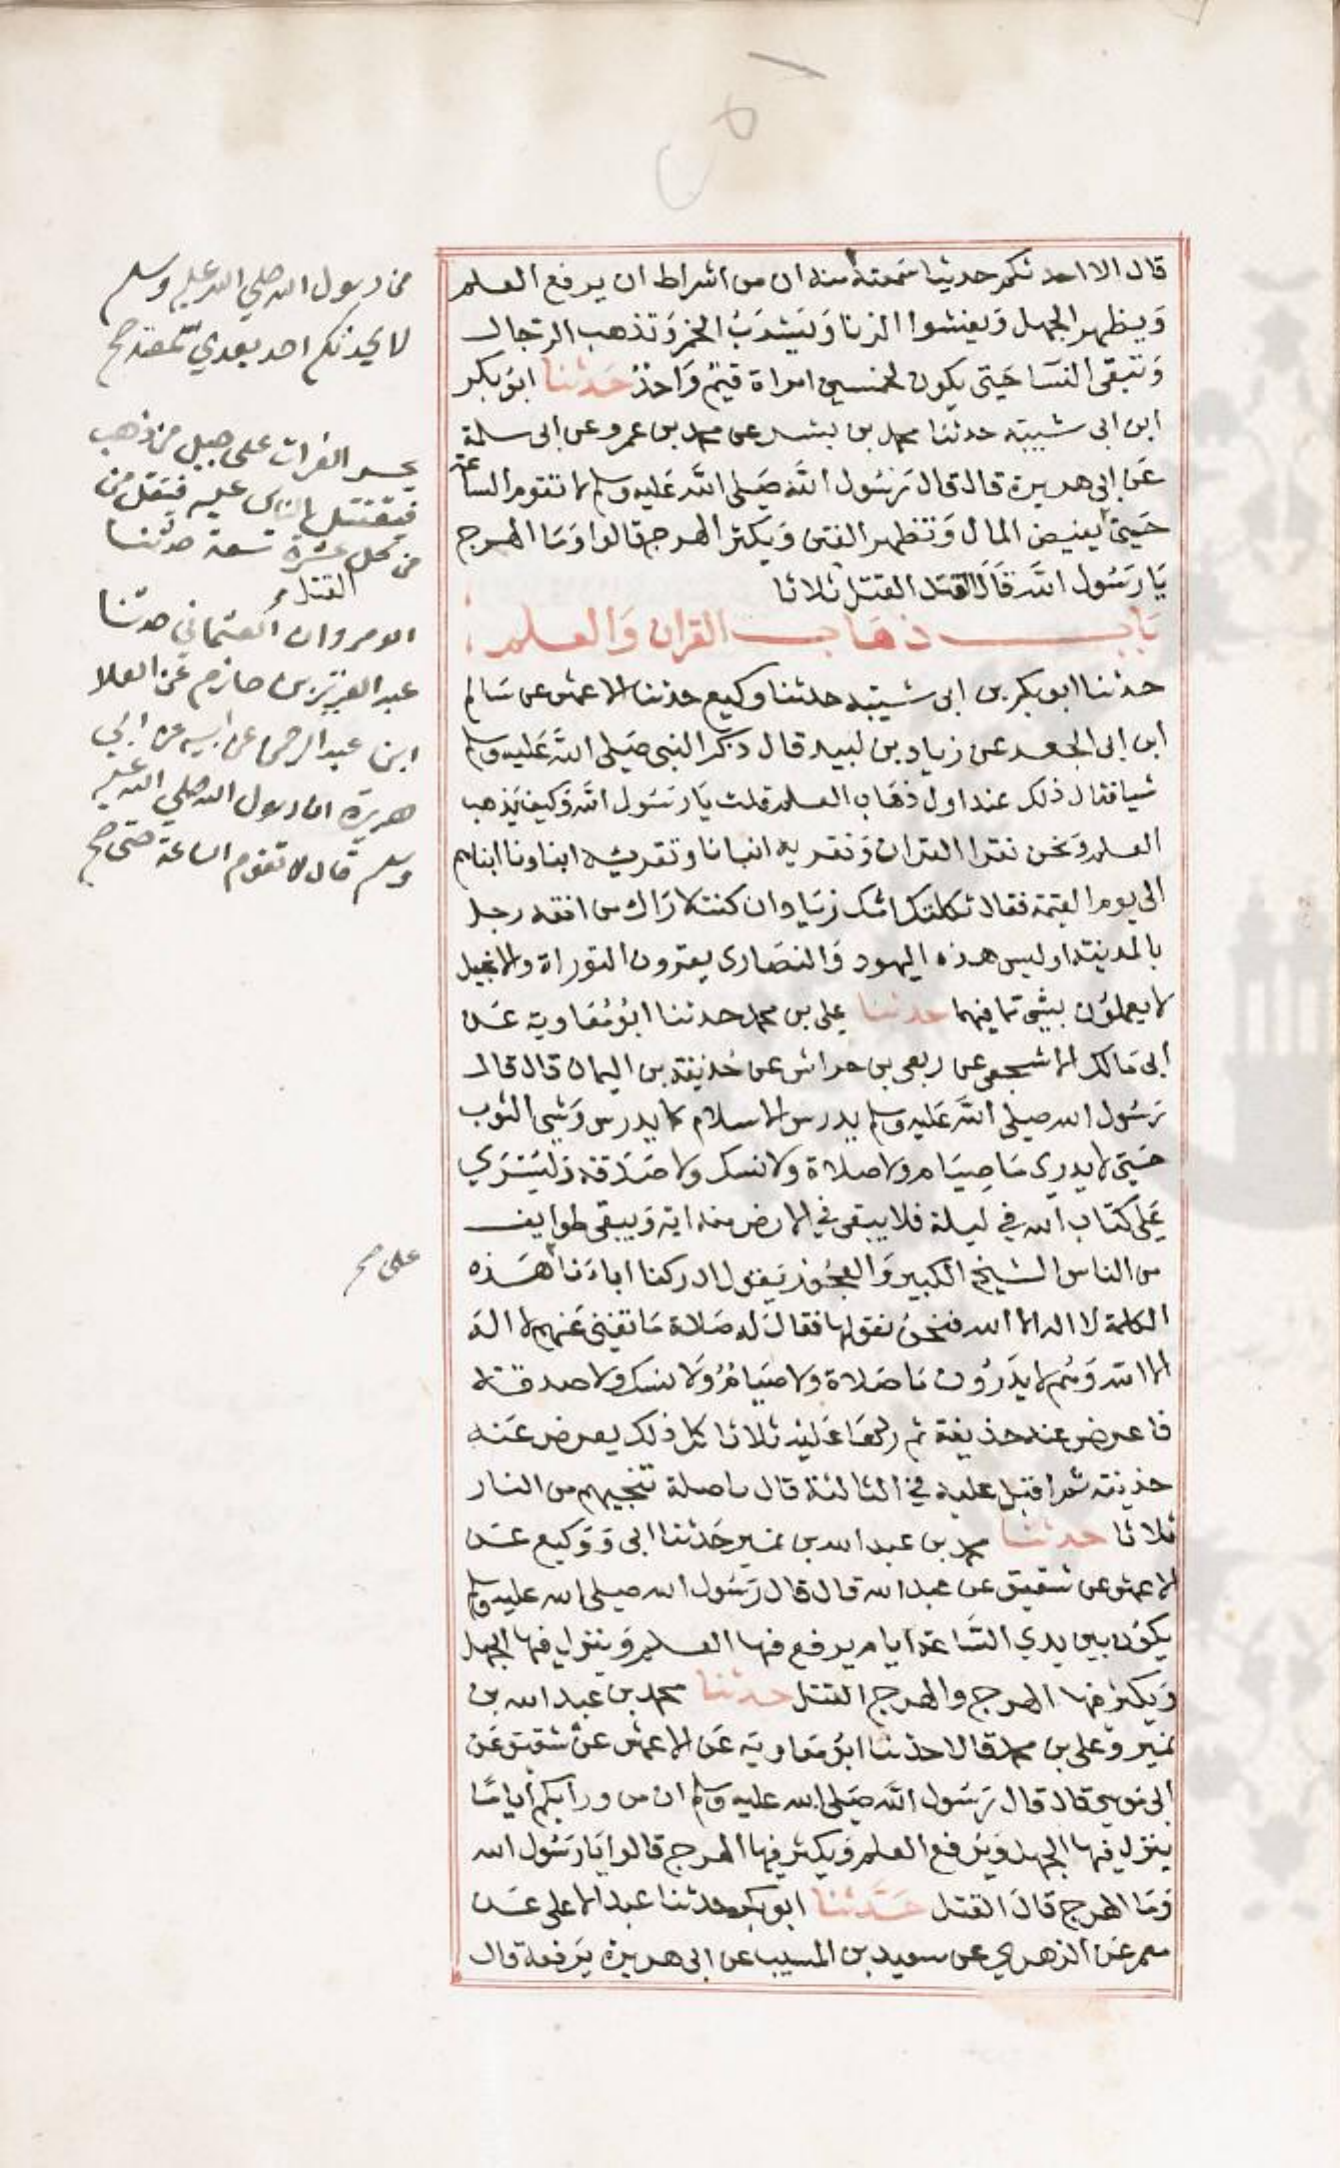 قال الا احدثكم حديثا سمعته منه ان من اشراط ان يرفع العلم
ويظهر الجهل ويفشوا الزنا ويشرب الخمر وتذهب الرجال
وتبقى النسا حتى يكون لخمسين امراة قيم واحد حدثنا ابو بكر
ابن ابى شيبة حدثنا محمد بن بشر عن محمد بن عمرو عن ابى سلمة
عن ابي هريرة قال قال رسول الله صلى الله عليه وسلم لا تقوم الساعة
حتى يفيض المال وتظهر الفتن ويكثر الهرج قالوا وما الهرج
يا رسول الله قال القتل القتل ثلاثا
باب ذهاب القران والعلم
حدثنا ابو بكر بن ابى شيبة حدثنا وكيع حدثنا الاعمش عن سالم
ابن ابى الجعد عن زياد بن لبيد قال ذكر النبى صلى الله عليه وسلم
شيا فقال ذلك عند اول ذهاب العلم قلت يا رسول الله وكيف يذهب
العلم ونحن نقرا القران ونقريه ابنانا وتقريه ابناونا ابناهم
الى يوم القيمة فقال ثكلتك امك زياد ان كنت لاراك من افقه رجل
بالمدينة اوليس هذه اليهود والنصارى يقرون التوراة والانجيل
لا يعملون بشى مما فيهما حدثنا على بن محمد حدثنا ابو معاوية عن
ابى مالك الاشجعى عن ربعى بن حراش عن حذيفة بن اليمان قال قال
رسول الله صلى الله عليه وسلم يدرس الاسلام كما يدرس وشى الثوب
حتى لا يدرى ما صيام ولا صلاة ولا نسك ولا صدقة وليسرى
على كتاب الله في ليلة فلا يبقى في الارض منه اية ويبقى طوايف
من الناس الشيخ الكبير والعجوز يقول ادركنا اباءنا هذه
الكلمة لا اله الا الله فنحن نقولها فقال له صلة ما تغنى عنهم لا اله
الا الله وهم لا يدرون ما صلاة ولا صيام ولا نسك ولا صدقة
فاعرض عنه حذيفة ثم ردها عليه ثلاثا كل ذلك يعرض عنه
حذيفة ثم اقبل عليه في الثالثة قال يا صلة تنجيهم من النار
ثلاثا حدثنا محمد بن عبد الله بن نمير حدثنا ابى ووكيع عن
الاعمش عن شقيق عن عبد الله قال قال رسول الله صلى الله عليه وسلم
يكون بين يدي الساعة ايام يرفع فيها العلم وينزل فيها الجهل
ويكثر فيها الهرج والهرج القتل حدثنا محمد بن عبد الله بن
نمير وعلى بن محمد قالا حدثنا ابو معاوية عن الاعمش عن شقيق عن
ابى موسى قال قال رسول الله صلى الله عليه وسلم ان من ورائكم اياما
ينزل فيها الجهل ويرفع العلم ويكثر فيها الهرج قالوا يا رسول الله
وما الهرج قال القتل حدثنا ابو بكر حدثنا عبد الاعلى عن
معمر عن الزهري عن سعيد بن المسيب عن ابى هريرة يرفعه قال
من رسول الله صلي الله عليه وسلم
لا يحدثكم احد بعدي سمعته صح
يحسر الفرات على جبل من ذهب
فيقتتل الناس عليه فيقتل من
من كل عشرة تسعة حدثنا
القتل
ابو مروان العثماني حدثنا
عبد العزيز بن حازم عن العلا
ابن عبد الرحمن عن ابيه عن ابي
هريرة ان رسول الله صلي الله عليه
وسلم قال لا تقوم الساعة حتى صح
على صح